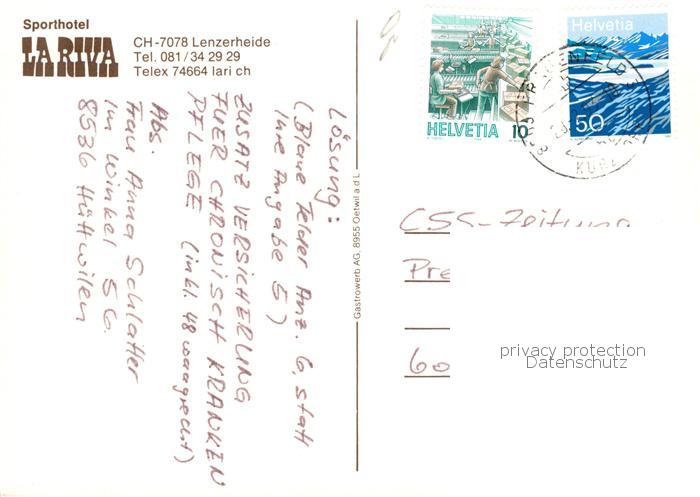 Sporthotel
LA RIVA
CH-7078 Lenzerheide
Tel. 081/34 29 29
Telex 74664 lari ch
Lösung:
(Blaue Felder Anz. 6, statt
Ihre Angabe 5)
ZUSATZVERSICHERUNG
FUER CHRONISCH KRANKEN
PFLEGE (inkl. 48 waagrecht)
Abs.
Frau Anna Schlatter
Im Winkel 56.
8536 Hüttwilen
Gastrowerb AG, 8955 Oetwil a d L
HELVETIA 10
Helvetia
50
CSS-Zeitung
Pre
60
privacy protection
Datenschutz